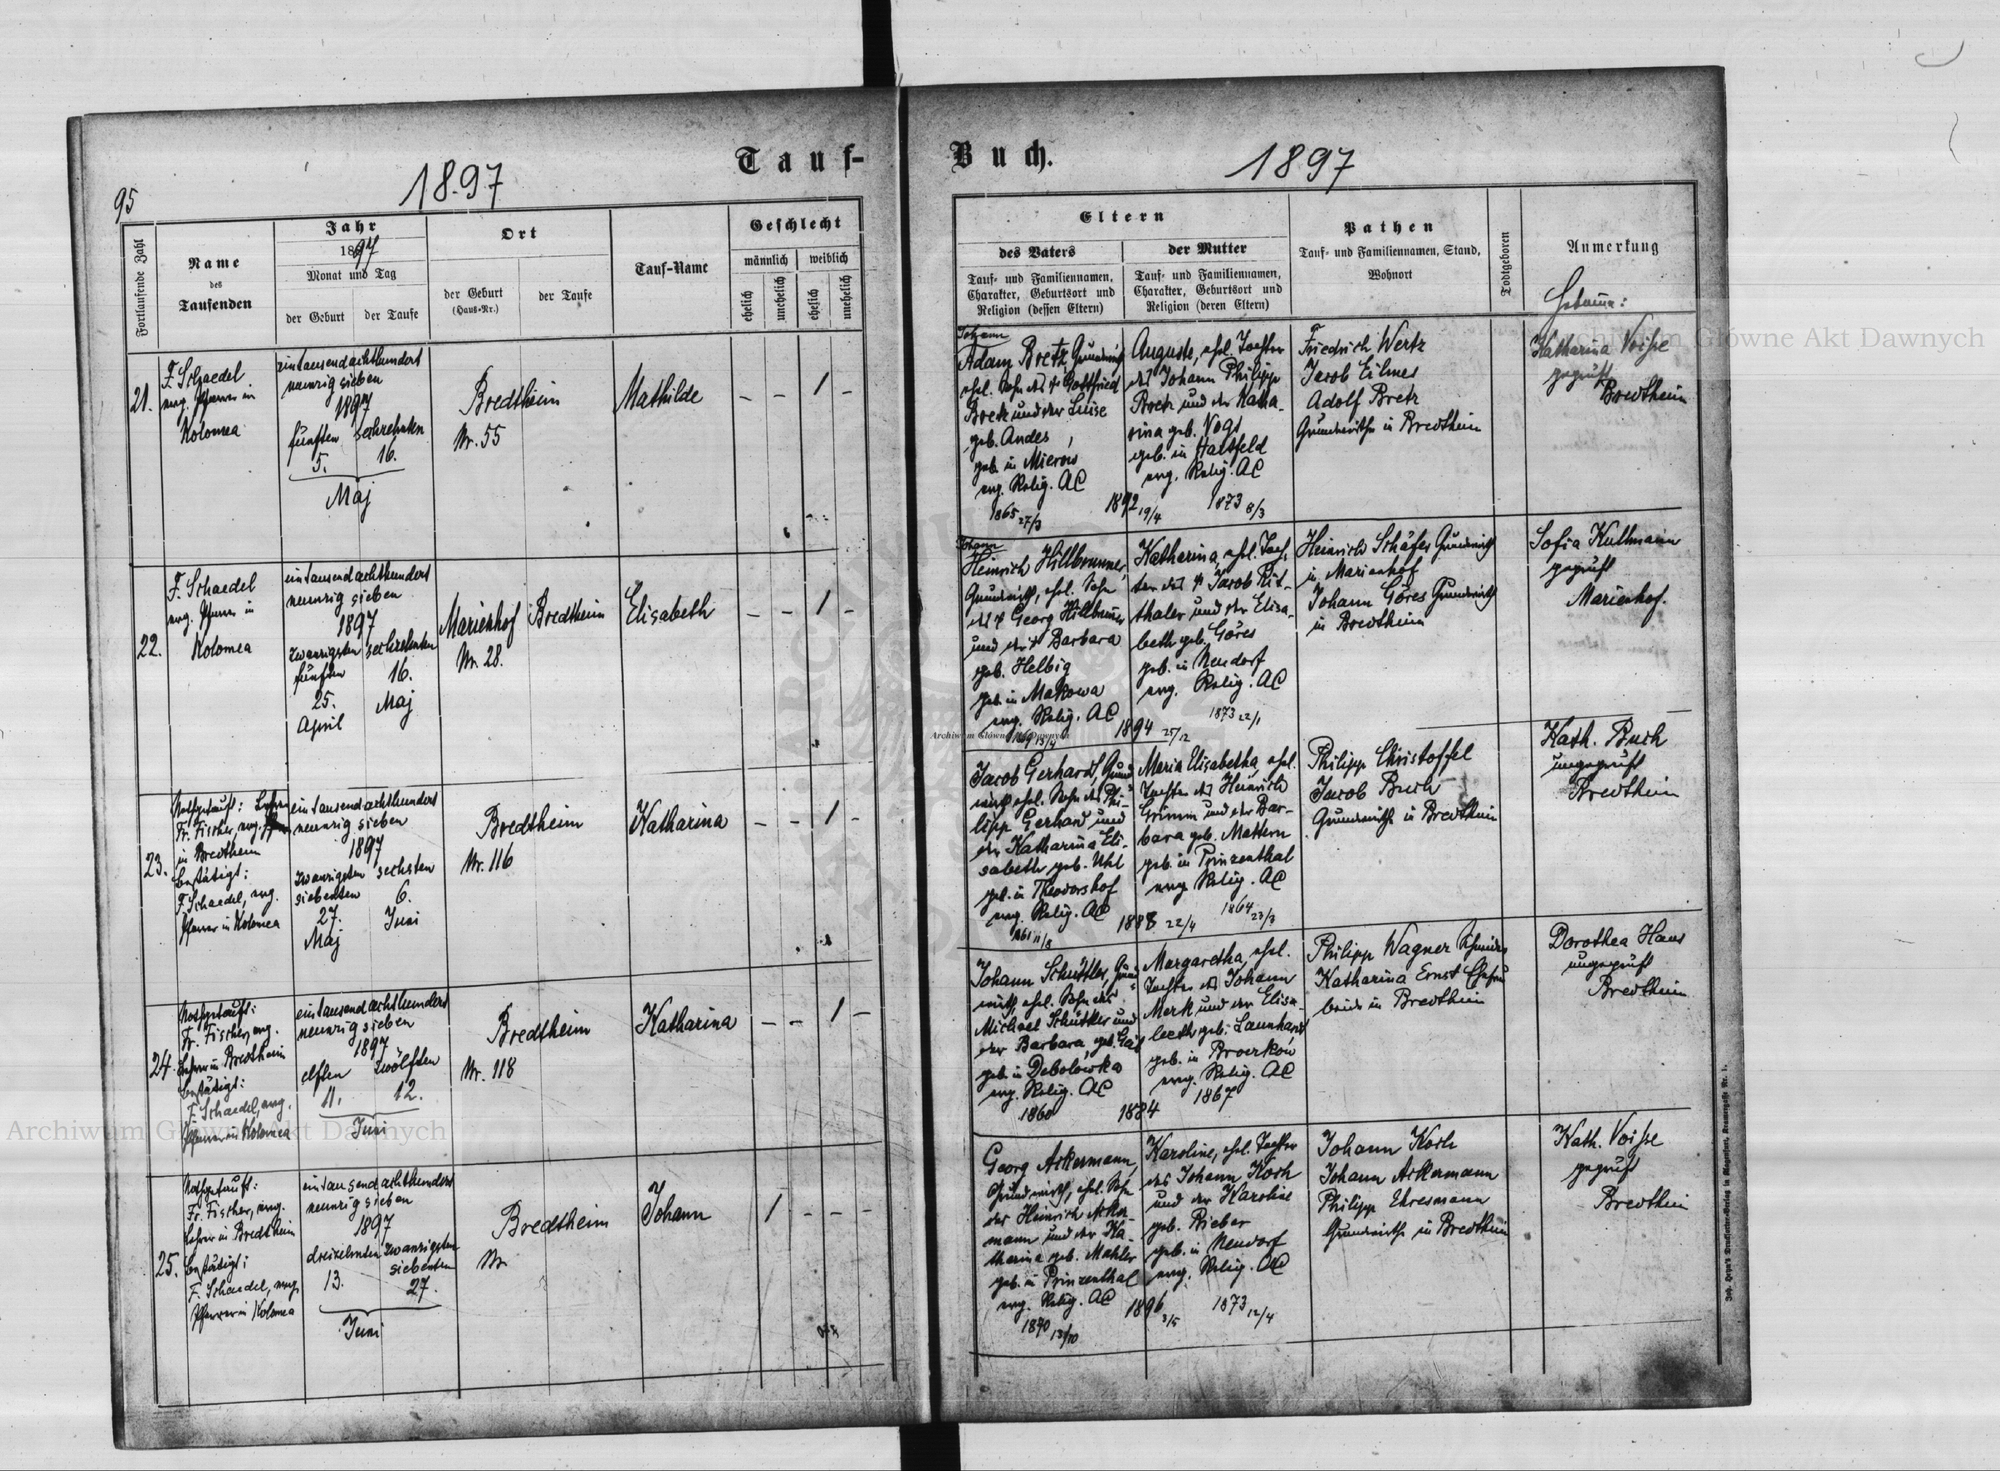 95
1897
Tauf-
Buch.
1897
Fortlaufende Zahl
Name
des
Taufenden
Jahr
1897
Monat und Tag
der Geburt
der Taufe
Ort
der Geburt
(Haus-Nr.)
der Taufe
Tauf-Name
Geschlecht
männlich
weiblich
ehelich
unehelich
ehelich
unehelich
Eltern
des Vaters
Tauf- und Familiennamen,
Charakter, Geburtsort und
Religion (dessen Eltern)
der Mutter
Tauf- und Familiennamen,
Charakter, Geburtsort und
Religion (deren Eltern)
Pathen
Tauf- und Familiennamen, Stand,
Wohnort
Todtgeboren
Anmerkung
21.
F. Schaedel
evg. Pfarrer in
Kolomea
eintausendachthundert
neunzig sieben
1897
fünften sechzehnten
5. 16.
Maj
Bredtheim
Nr. 55
Mathilde
– – 1 –
Johann
Adam Bretz Grundwirth
ehel. Sohn des † Gottfried
Bretz und der Luise
geb. Andes,
geb. in Mierow
evg. Relig. AC
1865 27/3
1892 19/4
Auguste, ehel. Tochter
des Johann Philipp
Bretz und der Katha-
rina geb. Vogt
geb. in Hartfeld
evg. Relig. AC
1873 8/3
Friedrich Wertz
Jacob Eilmes
Adolf Bretz
Grundwirthe in Bredtheim
Katharina Voisse
geprüft
Bredtheim
22.
F. Schaedel
evg. Pfarrer in
Kolomea
eintausendachthundert
neunzig sieben
1897
zwanzigsten sechzehnten
fünften 16.
25. Maj
April
Marienhof Bredtheim
Nr. 28.
Elisabeth
– – 1 –
Johann
Heinrich Hillbrunner,
Grundwirth, ehel. Sohn
des † Georg Hillbrunner
und der † Barbara
geb. Helbig
geb. in Makowa
evg. Relig. AC
1869 13/4
1894 25/12
Katharina, ehel. Toch-
ter des † Jacob Rit-
thaler und der Elisa-
beth geb. Göres
geb. in Neudorf
evg. Relig. AC
1873 22/1
Heinrich Schäfer Grundwirth
in Marienhof
Johann Göres Grundwirth
in Bredtheim
Sofia Kullmann
geprüft
Marienhof.
23.
Nothgetauft: Lehrer
Fr. Fischer, evg.
in Bredtheim
bestätigt:
F. Schaedel, evg.
Pfarrer in Kolomea
eintausendachthundert
neunzig sieben
1897
zwanzigsten sechsten
siebenten 6.
27. Juni
Maj
Bredtheim
Nr. 116
Katharina
– – 1 –
Jacob Gerhard, Grund-
wirth ehel. Sohn des Phi-
lipp Gerhard und
der Katharina Eli-
sabeth geb. Uhl
geb. in Theodorshof
evg. Relig. AC
1861 11/8
1888 22/4
Maria Elisabetha, ehel.
Tochter des Heinrich
Grimm und der Bar-
bara geb. Mattern
geb. in Prinzenthal
evg. Relig. AC
1864 23/3
Philipp Christoffel
Jacob Buch
Grundwirthe in Bredtheim
Kath. Buch
ungeprüft
Bredtheim
24.
Nothgetauft:
Fr. Fischer, evg.
Lehrer in Bredtheim
bestätigt:
F. Schaedel, evg.
Pfarrer in Kolomea
eintausendachthundert
neunzig sieben
1897
elften zwölften
11. 12.
Juni
Bredtheim
Nr. 118
Katharina
– – 1 –
Johann Schüttler, Grund-
wirth, ehel. Sohn des
Michael Schüttler und
der Barbara, geb. Gäs
geb. in Debolówka
evg. Relig. AC
1860
1884
Margaretha, ehel.
Tochter des Johann
Merk und der Elisa-
beth geb. Launhard
geb. in Broczków
evg. Relig. AC
1867
Philipp Wagner
Katharina Ernst
beide in Bredtheim
Dorothea Haus
ungeprüft
Bredtheim
25.
Nothgetauft:
Fr. Fischer, evg.
Lehrer in Bredtheim
bestätigt:
F. Schaedel, evg.
Pfarrer in Kolomea
eintausendachthundert
neunzig sieben
1897
dreizehnten zwanzigsten
siebenten
13. 27.
Juni
Bredtheim
Nr.
Johann
1 – – –
Georg Ackermann,
Grundwirth, ehel. Sohn
des Heinrich Acker-
mann und der Ka-
tharina geb. Mahler
geb. in Prinzenthal
evg. Relig. AC
1870 13/10
1896 3/5
Karoline, ehel. Tochter
des Johann Koch
und der Karoline
geb. Bieber
geb. in Neudorf
evg. Relig. AC
1873 12/4
Johann Koch
Johann Ackermann
Philipp Ehresmann
Grundwirthe in Bredtheim
Kath. Voisse
geprüft
Bredtheim
Archiwum Główne Akt Dawnych
Archiwum Główne Akt Dawnych
Archiwum Główne Akt Dawnych